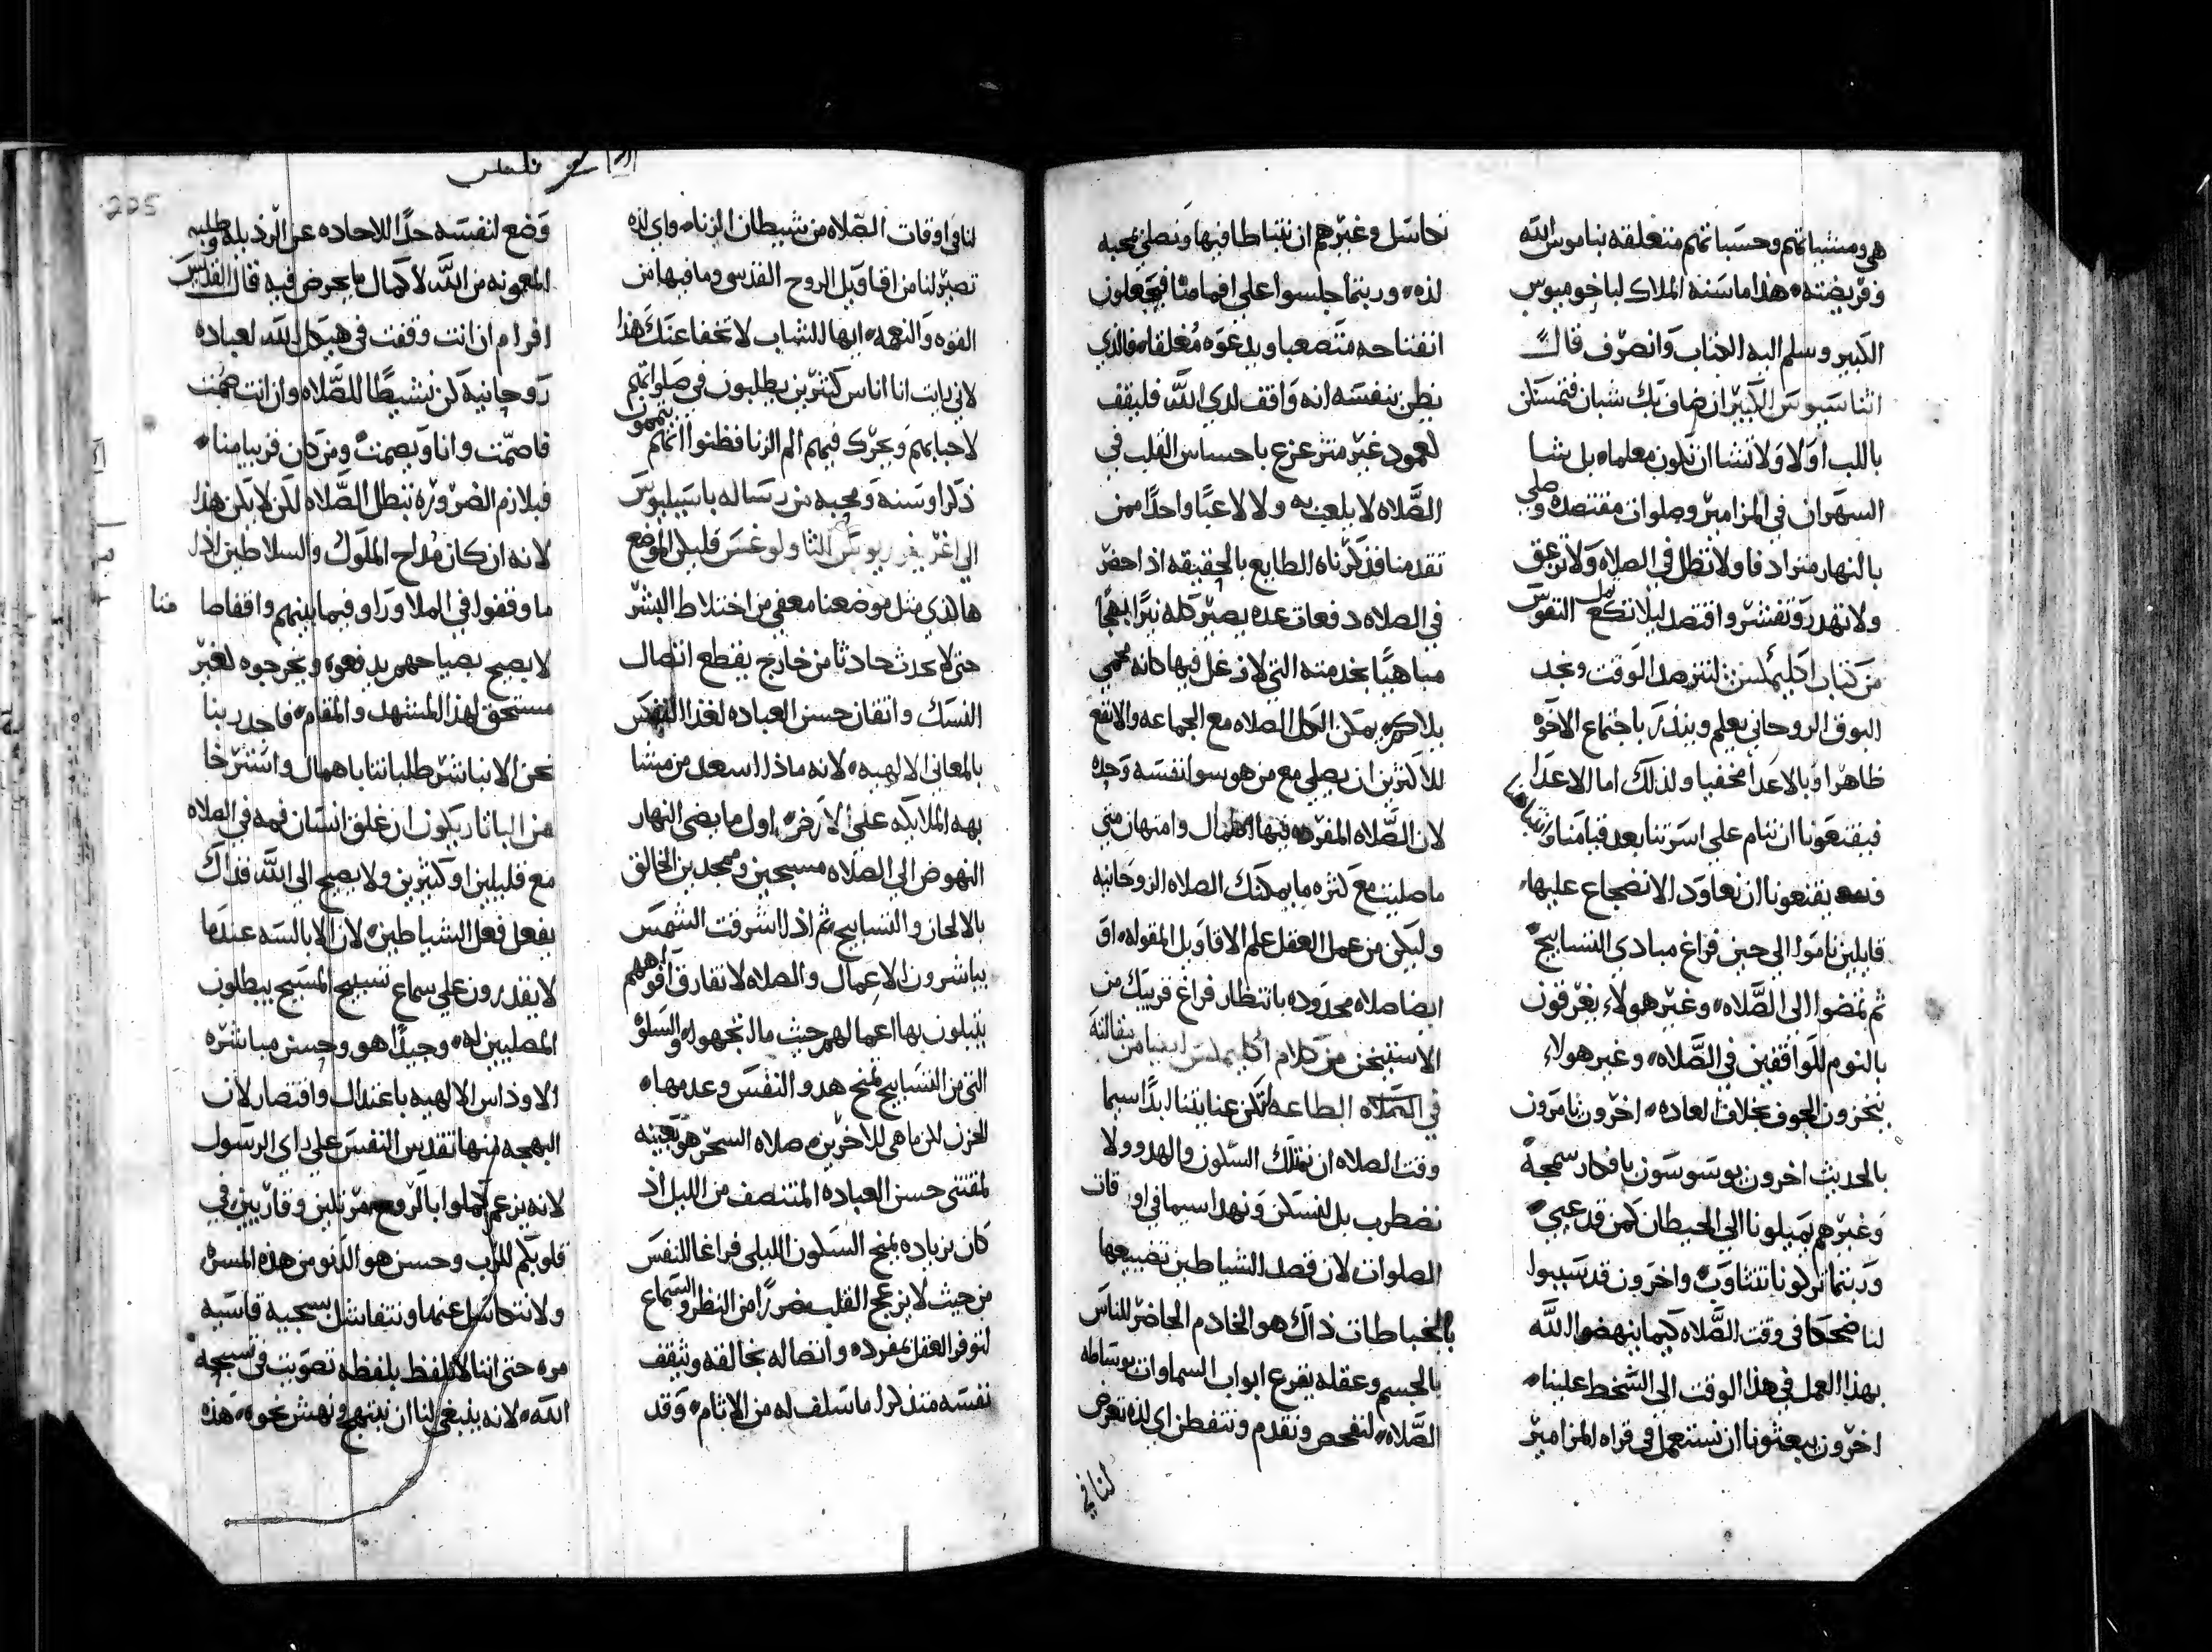 هي ومشياتهم وحسباتهم متعلقه بناموس الله
وفريضته هذا ما سنه الملاك لباخوميوس
الكبير وسلم اليه الكتاب وانصرف قال
اثناسيوس الكبير ان ضاف بك شبان فتمسكن
باللب اولا ولا تشا ان تكون معلما بل شا
السهران في المزامير وصلوات مقتصده وصلي
بالنهار مترادفا ولا تطل في الصلاه ولا تزعق
ولا تهدر وتفتشر واقتصد ليلا تكع النفوس
من كتاب اكليمكس لنترصد الوقت ونجد
البوق الروحاني يعلم وينذر باجتماع الاخوه
ظاهرا وبالاعدا مخفيا ولذلك اما الاعدا
فيقنعونا ان ننام علي اسرتنا بعد قيامنا
يقنعونا ان نعاود الانضجاع عليها
قايلين ناموا الي حين فراغ مبادي التسابيح
ثم تمضوا الي الصلاه وغير هولاء يغرقون
بالنوم للواقفين في الصلاه وغير هولاء
ينخزون الجوف بخلاف العاده اخرون يامرون
بالحديث اخرون يوسوسون بافكار سمجه
وغيرهم يميلونا الي الحيطان كمن قد عيي
وربما تركونا نتثاوب واخرون قد سببوا
لنا ضحكا في وقت الصلاه كيما ينهضوا الله
بهذا العمل في هذا الوقت الي السخط علينا
اخرون يبعثونا ان نستعمل في قراه المزامير
تكاسل وغيرهم ان نتباطا فيها ونصلي بمحبه
لذه وربما جلسوا علي افمامنا فيجعلون
انفتاحه متصعبا ويدعوه مغلقا فالذي
يظن بنفسه انه واقف لدي الله فليقف
كعمود غير متزعزع باحساس القلب في
الصلاه لا يلعب به ولا لاعبا واحدا ممن
تقدمنا فذكرناه الطايع بالحقيقه اذا حضر
في الصلاه دفعات عده يصير كله نيرا بهجا
مباهيا بخدمته التي لا زغل فيها كانه محمي
يمكن الكل الصلاه مع الجماعه والانفع
للاكثرين ان يصلي مع من هو سوا نفسه وحده
لان الصلاه المفرده فيها اهمال وامتهان متي
ما صليت مع كثره ما يمكنك الصلاه الروحانيه
وليكن من عمل العقل علم الاقاويل المقوله او
ايضا صلاه محدوده بانتظار فراغ قريبك من
الاستيخن من كلام اكليمكس ايضا من مقالته
في الصلاه الطاعه لتكن عنايتنا ابدا سيما
وقت الصلاه ان نمتلك السكون والهدو ولا
نضطرب بل لنسكن ونهدا سيما في اوقات
الصلوات لان قصد الشياطين تضييعها
بالخباطات ذاك هو الخادم الحاضر للناس
بالجسم وعقله يقرع ابواب السماوات بوساطه
الصلاه لنفحص ونقدم ونتفطن اي لذه تعرض
لنا في
225
لنا في اوقات الصلاه من شيطان الزنا واي لذه
تصير لنا من اقاويل الروح القدس وما فيها من
القوه والنعمه ايها الشاب لا تخفا عنك هذا
لاني رايت انا اناس كثيرين يطلبون في صلواتهم
لاحبايهم ويحرك فيهم الم الزنا فظنوا انهم يتممون
ذكرا وسنه ومحبه من رساله باسيليوس
الي اغريغوريوس الثاولوغس فليكن الموضع
هالذي مثل موضعنا معفي من اختلاط البشر
حتي لا يحدث حادثا من خارج يقطع اتصال
النسك واتقان حسن العباده لغذا النفس
بالمعاني الالهيه لانه ماذا اسعد من مشا
بهه الملايكه علي الارض اول ما يضي النهار
النهوض الي الصلاه مسبحين وممجدين الخالق
بالالحان والتسابيح ثم اذا اشرقت الشمس
يباشرون الاعمال والصلاه لا تفارق افواههم
يتبلون بها اعمالهم حيث مالحجهوله والسلوه
التي من التسابيح تمنح هدو النفس وعدمها
الحزن كلما هي للاخرين صلاه السحر هو بعينه
لمقتني حسن العباده المتنصف من الليل اذ
كان بزياده يمنح السكون الليلي فراغا للنفس
من حيث لا يزعج القلب ضررا من النظر والسماع
لتوفر العقل بمفرده واتصاله بخالقه وتثقف
نفسه متذكرا ما سلف له من الاثام وقد
وضع لنفسه حدا للاحاده عن الرذيله وطلبه
المعونه من الله لاكمال ما يحرض فيه قال القديس
افرام ان انت وقفت في هيكل الله لعباده
روحانيه كن نشيطا للصلاه وان انت صمت
فاصمت وانا ويصمت ومن كان قريبا منا
فبلازم الضروره تبطل الصلاه لكن لا يكن هذا
لانه ان كان مداح الملوك والسلاطين اذا
ما وقفوا في الملا وراو فيما بينهم واقفا صامتا
لا يصيح بصياحهم يدفعوه ويخرجوه كغير
مستحق لهذا المشهد والمقام فاجدر بنا
نحن الا نباشر طلباتنا باهمال واسترخا
من الباثار يكون ان غلق انسان فمه في الصلاه
مع قليلين او كثيرين ولا يصيح الي الله فذاك
يفعل فعل الشياطين لان الابالسه عندما
لا يقدرون علي سماع تسبيح المسيح يبطلون
المصليين له وجيدا هو وحسن مباشره
الاوذاس الالهيه باعتدال واقتصار لان
البهجه منها تقدس النفس علي راي الرسول
لانه يزعم كملوا بالروح مرتلين وقاريين في
قلوبكم للرب وحسن هو الدنو من هذه المسره
ولا نتكاسل عنها ونتفاشل بسجيه قاسيه
مره حتي اننا لا نلفظ بلفظه تصويت في تسبيحه
الله لانه ينبغي لنا ان نبتهج ونهش نحوه هذه